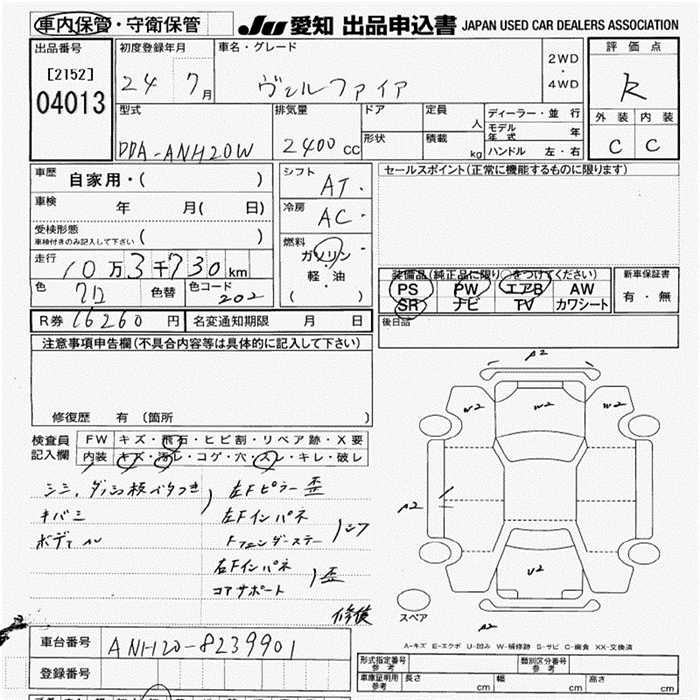 車内保管・守衛保管
JU 愛知 出品申込書 JAPAN USED CAR DEALERS ASSOCIATION
出品番号
[2152]
04013
初度登録年月
24 7月
車名・グレード
ヴェルファイア
2WD
・
4WD
評価点
R
外装 内装
C C
型式
DDA-ANH20W
排気量
2400cc
ドア
形状
定員 人
積載 kg
ディーラー・並行
モデル年式 年
ハンドル 左・右
車歴 自家用・( )
車検 年 月( 日)
受検形態
車検付きのみ記入して下さい ( )
走行
10万3千730km
色 クロ 色替 色コード 202
シフト AT
冷房 AC
燃料
ガソリン
・
軽・油
( )
セールスポイント(正常に機能するものに限ります)
装備品(純正品に限り○をつけてください)
PS PW エアB AW
SR ナビ TV カワシート
新車保証書
有・無
後日品
R券 16260円 名変通知期限 月 日
注意事項申告欄(不具合内容等は具体的に記入して下さい)
修復歴 有 (箇所 )
検査員記入欄
FW キズ・飛石・ヒビ割・リペア跡・X要
内装 キズ・汚レ・コゲ・穴・スレ・キレ・破レ
シミ、ダッシュ板ベタつき
キバミ
左Fピラー 歪
左Fインパネ
右Fインパネ
コアサポート
歪
修復
A2
W2 W2 W2
A2
U2
A2
スペア
A-キズ E-エクボ U-凹み W-補修跡 S-サビ C-腐食 XX-交換済
車台番号 ANH20-8239901
登録番号
形式指定番号 参考
類別区分番号 参考
車庫証明用 参考 長さ cm 幅 cm 高さ cm